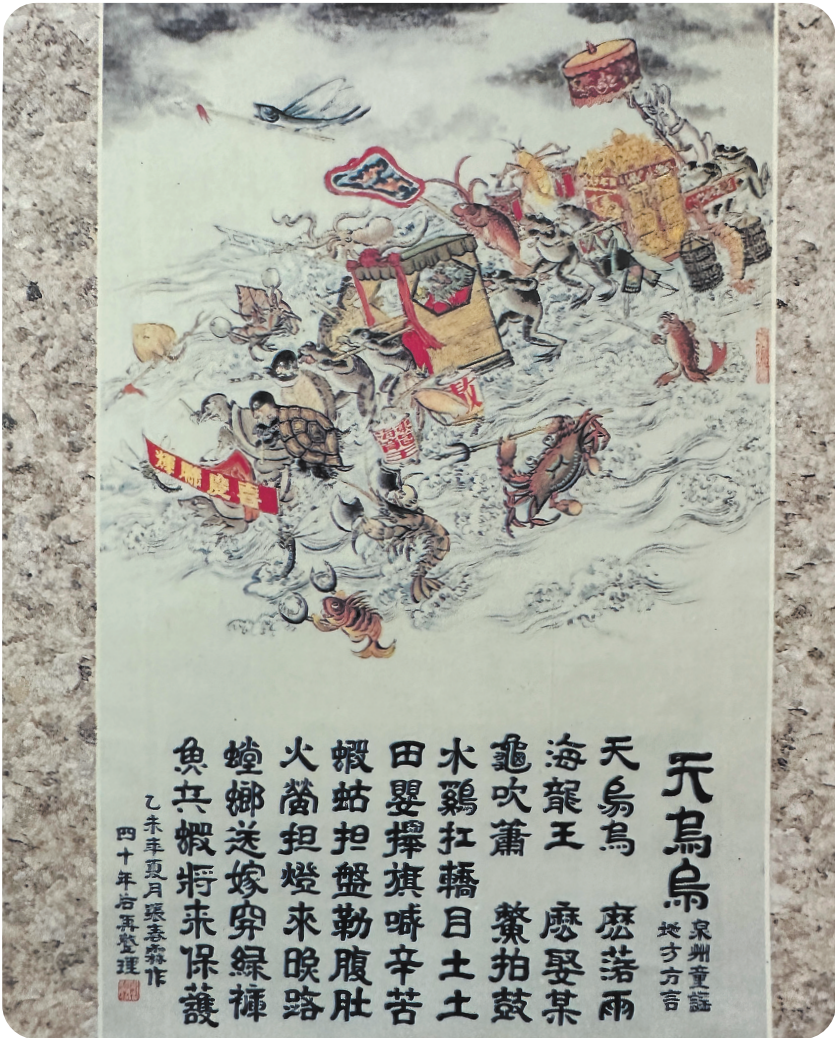 喜慶聯輝
天烏烏
泉州童謡
地方方言
天烏烏 麽落雨
海龍王 麽娶某
龜吹蕭 鱟拍鼓
水鷄扛轎目土土
田嬰攑旗喊辛苦
蝦蛄担盤勒腹肚
火螢担燈來睺路
螳螂送嫁穿緑褲
魚兵蝦將来保護
乙未年夏月張春霖作
四十年后再整理